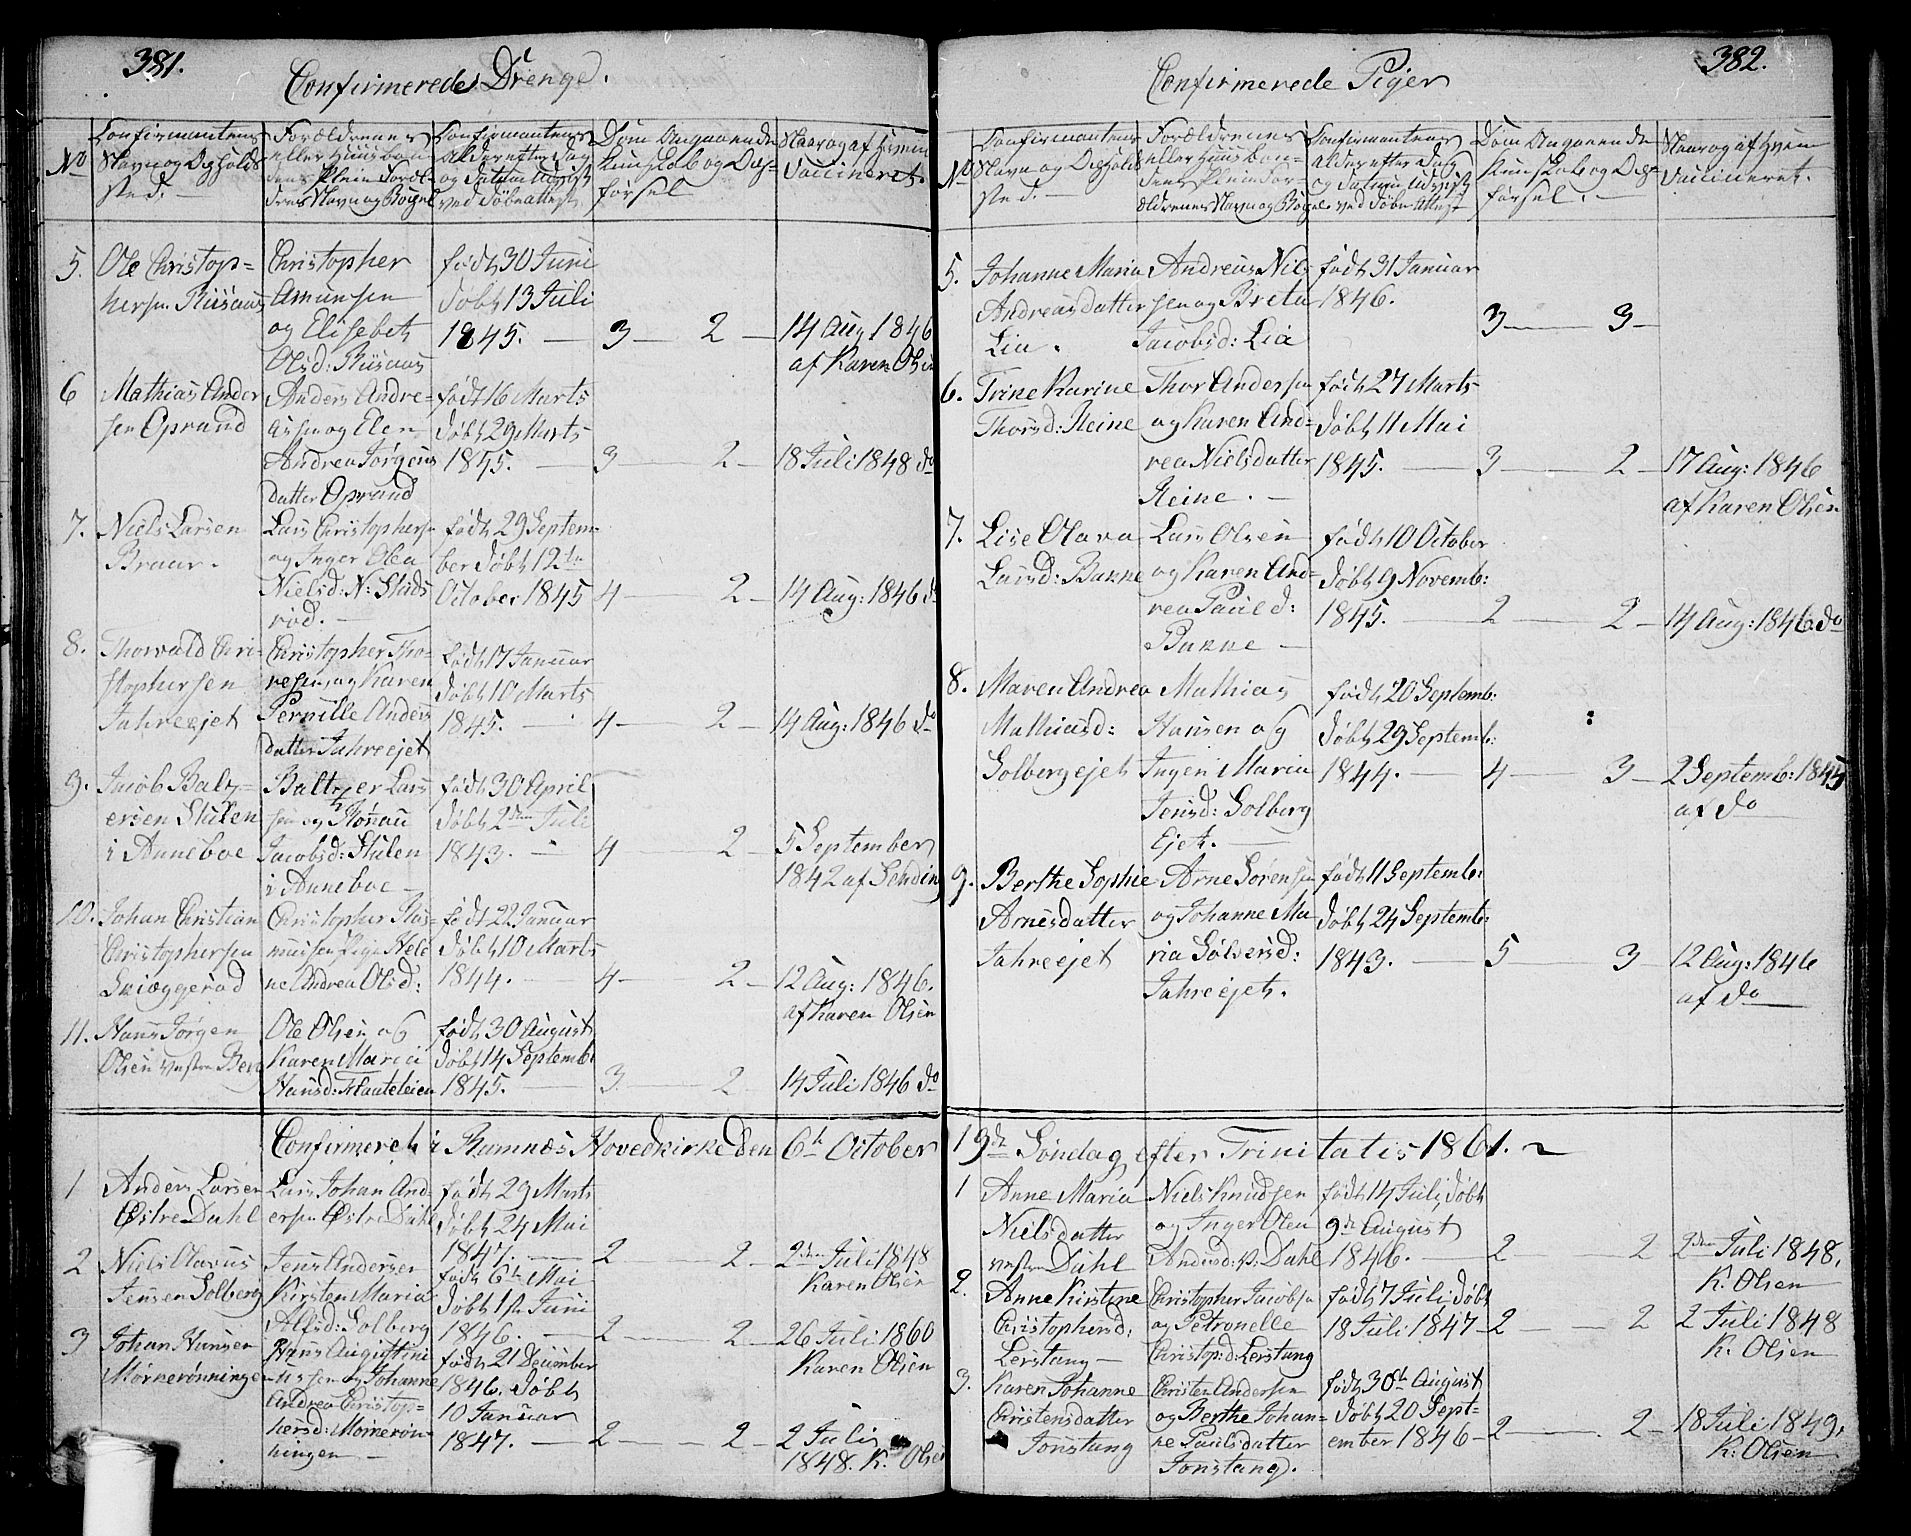 381.
Confirmerede Drenge.
No
Confirmantens
Navn og Opholds
sted. -
Forældrenes
eller Huusbon
dens
drenes Navn og Bopæl
Confirmantens
Alder efter Dag
og Datum udviist
ved Døbeattest
Dom Angaaende
Kundskab og Op-
førsel
Naar og af Hvem
Vaccineret.
5. Ole Christop=
hersen Riisaas
Christopher
Amunsen
og Elisebeth
Olsd: Riisaas
født 30 Juni
døbt 13 Juli
1845. —
3 — 2 —
14 Aug 1846
af Karen Olsen
6 Mathias Ander
sen Oprand
Anders Andre-
assen og Elen
Andrea Jørgens
datter Oprand
født 16 Marts
døbt 29 Marts
1845. —
3 — 2 —
18 Juli 1848 do
7. Niels Larsen
Braar.
Lars Christophers
og Inger Olea
Nielsd: N: Stads
rød. —
født 29 Septem-
ber døbt 12te
October 1845
4 — 2 —
14 Aug: 1846 do
8. Thorvald Chri-
stophersen
Jahreejet
Christopher Tho-
resen og Karen
Pernille Anders
datter Jahreejet
født 17 Januar
døbt 10 Marts
1845. —
4 — 2 —
14 Aug: 1846 do
9. Jacob Baltz-
ersen Stulen
i Anneboe
Baltzer Lars
sen og
Jacobsd: Stulen
i Anneboe —
født 30 April
døbt 2den Juli
1843. —
4 — 2 —
5 September
1842 af
10. Johan Christian
Christophersen
Sniøggerød
Christopher Ras-
mussen Pige Hele
ne Andrea Olsd:
født 22 Januar
døbt 10 Marts
1844. —
4 — 2 —
12 Aug: 1846.
af Karen Olsen
11. Hans Jørgen
Olsen vestre Berg
Ole Olsen og
Karen Maria
Hansd:
født 30 August
døbt 14 Septemb:
1845. —
3 — 2
14 Juli 1846 do
Confirmeret i Ramnæs Hovedkirke den 6te October
1 Anders Larsen
Østre Dahl
Lars Johan And-
ersen Østre Dahl
født 29 Marts
døbt 24 Mai
1847. —
2 — 2 —
2den Juli 1848
Karen Olsen
2 Niels Olavus
Jensen Solberg
Jens Andersen
Kirsten Maria
Alfsd: Solberg
født 6te Mai
døbt 1ste Juni
1846. —
2 — 2 —
26 Juli 1860
Karen Olsen
3 Johan Hansen
Mørkerønningen
Hans Augustini
ussen og Johanne
Andrea Christop-
hersd: Mørkerøn-
ningen —
født 21 December
1846. døbt
10 Januar
1847. —
2 — 2 —
2 Juli
1848. K: Olsen
382.
Confirmerede Piger
No
Confirmantens
Navn og Opholds
sted. -
Forældrenes
eller Huusbon-
dens
ældrenes Navn og Bopæl
Confirmantens
Alder efter Dag
og Datum udviist
ved Døbe Attest
Dom Angaaende
Kundskab og Op-
førsel. —
Naar og af Hvem
Vaccineret.
5. Johanne Maria
Andreasdatter
Lia.
Andreas Nil-
sen og Breta
Jacobsd: Lia
født 31 Januar
1846.
3 — 3 —
6. Trine Karine
Thorsd: Heine
Thor Andersen
og Karen And-
rea Nielsdatter
Heine. —
født 27 Marts
døbt 11 Mai
1845. —
3 — 2 —
17 Aug: 1846
af Karen Olsen
7. Lise Olava
Larsd: Bakke
Lars Olsen
og Karen And-
rea Pauld:
Bakke —
født 10 October
døbt 9 Novemb:
1845. —
2 — 2 —
14 Aug: 1846 do
8. Maren Andrea
Mathiasd:
Solbergejet
Mathias
Hansen og
Ingen Maria
Jensd: Solberg
Ejet. —
født 20 Septemb:
døbt 29 Septemb:
1844. —
4 — 3 —
2 Septemb: 1845
af do
9. Berthe Sophie
Arnesdatter
Jahreejet
Arne Sørensen
og Johanne Ma-
ria Sølversd:
Jahreejet.
født 11 Septemb:
døbt 24 Septemb:
1843. —
5 — 3
12 Aug: 1846
af do
19de Søndag efter Trinitatis 1861.
1 Anne Maria
Nielsdatter
vestre Dahl
Niels Knudsen
og Inger Olea
Andersd: v: Dahl
født 14 Juli, døbt
9de August
1846. —
2 — 2
2den Juli 1848.
K. Olsen
2. Anne Kirstine
Christophersd:
Lerstang —
Christopher Jacobsen
og Petronelle
Christop:d: Lerstang
født 7 Juli, døbt
18 Juli 1847 —
2 — 2
2 Juli 1848
K. Olsen
3. Karen Johanne
Christensdatter
Jonstang
Christen Andersen
og Berthe Johan-
ne Paulsdatter
Jonstang.
født 30te August
døbt 20 Sept-
ember 1846 —
2 — 2 —
18 Juli 1849.
K: Olsen